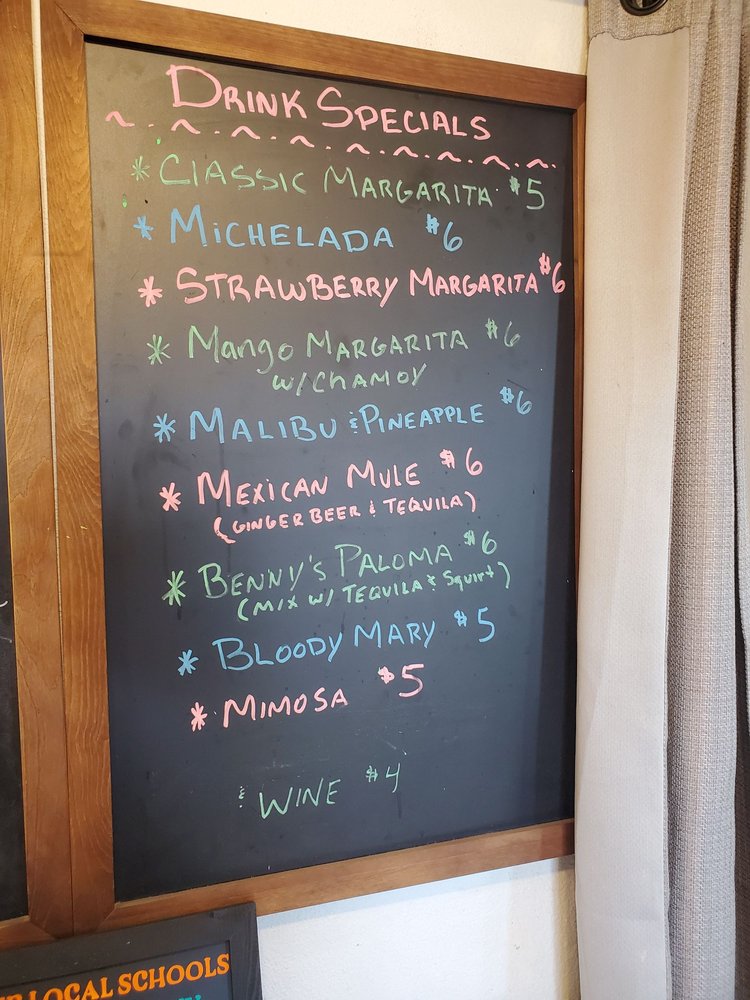 DRINK SPECIALS
* CLASSIC MARGARITA $5
* MICHELADA $6
* STRAWBERRY MARGARITA $6
* Mango MARGARITA $6
W/CHAMOY
* MALIBU & PINEAPPLE $6
* MEXICAN MULE $6
(GINGER BEER & TEQUILA)
* BENNY'S PALOMA $6
(MIX W/ TEQUILA & Squirt)
* BLOODY MARY $5
* MIMOSA $5
& WINE $4
LOCAL SCHOOLS